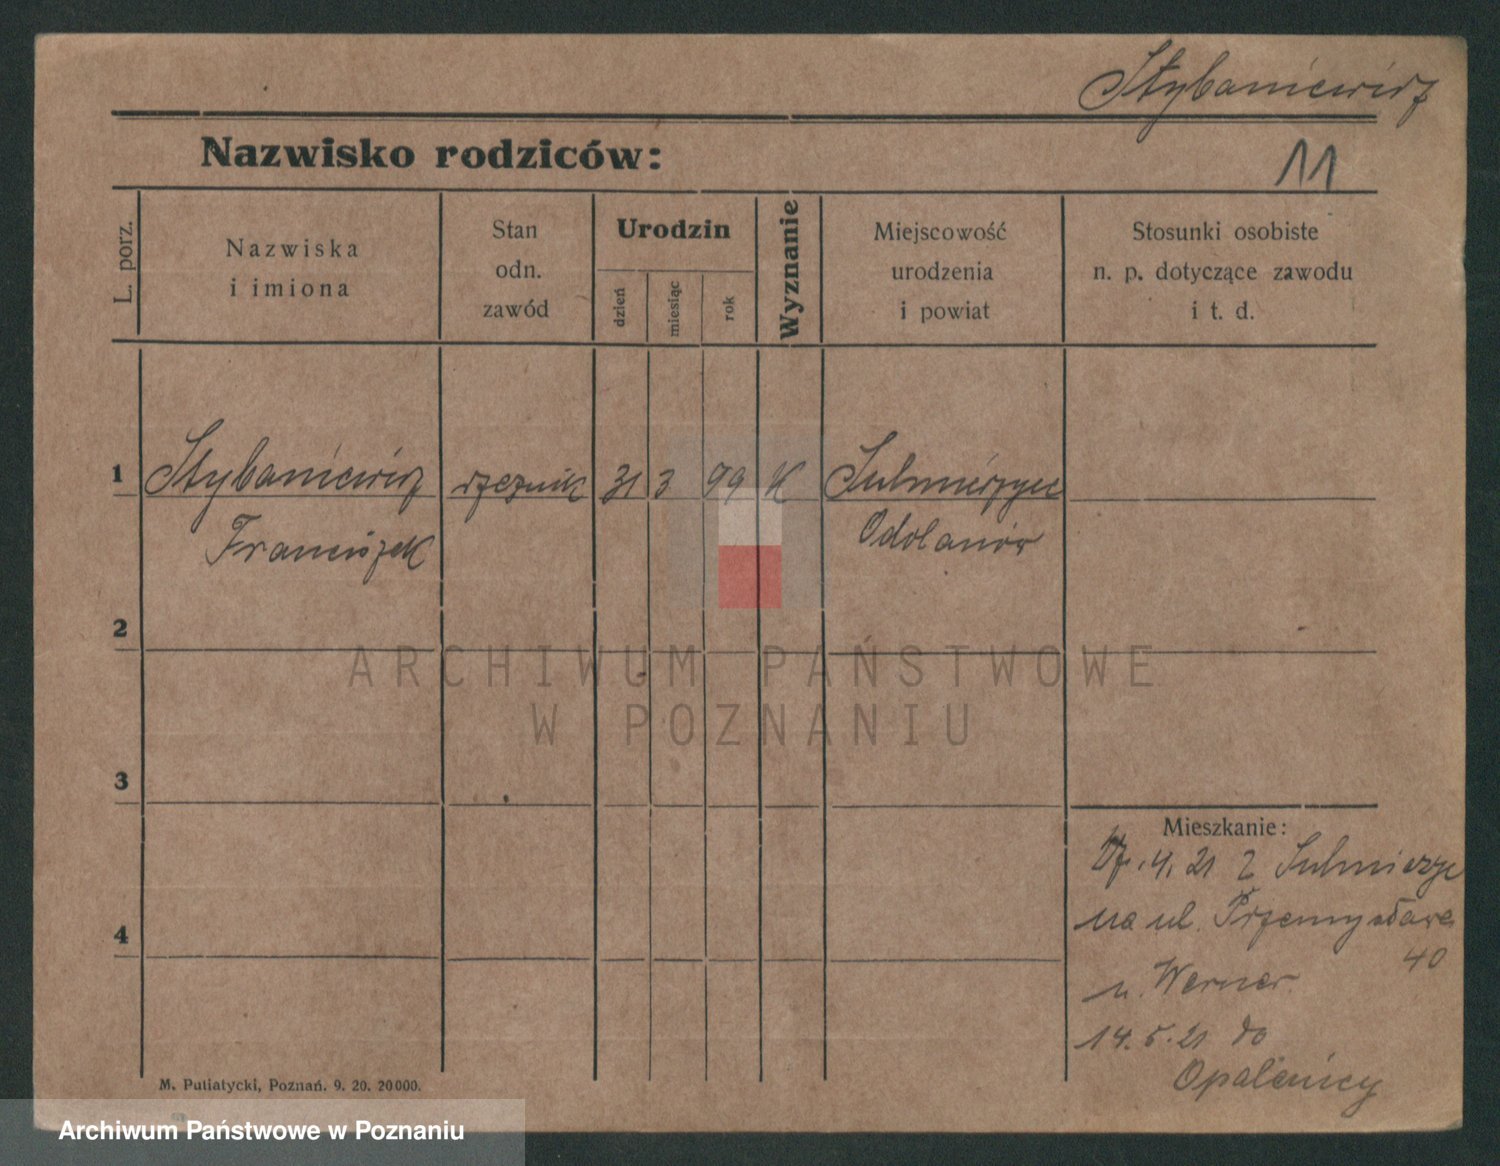 Stybaniewicz
Nazwisko rodziców:
11
L. porz.
Nazwiska
i imiona
Stan
odn.
zawód
Urodzin
dzień
miesiąc
rok
Wyznanie
Miejscowość
urodzenia
i powiat
Stosunki osobiste
n. p. dotyczące zawodu
i t. d.
1 Stybaniewicz rzeźnik 31 3 99 K Sulmierzyce
Franciszek Odolanów
2
3
4
Mieszkanie:
4. 21 z Sulmierzyc
na ul. Przemysława
40
u. Werner.
14. 5. 21 do
Opalenicy
M. Putiatycki, Poznań. 9. 20. 20000.
ARCHIWUM PAŃSTWOWE
W POZNANIU
Archiwum Państwowe w Poznaniu